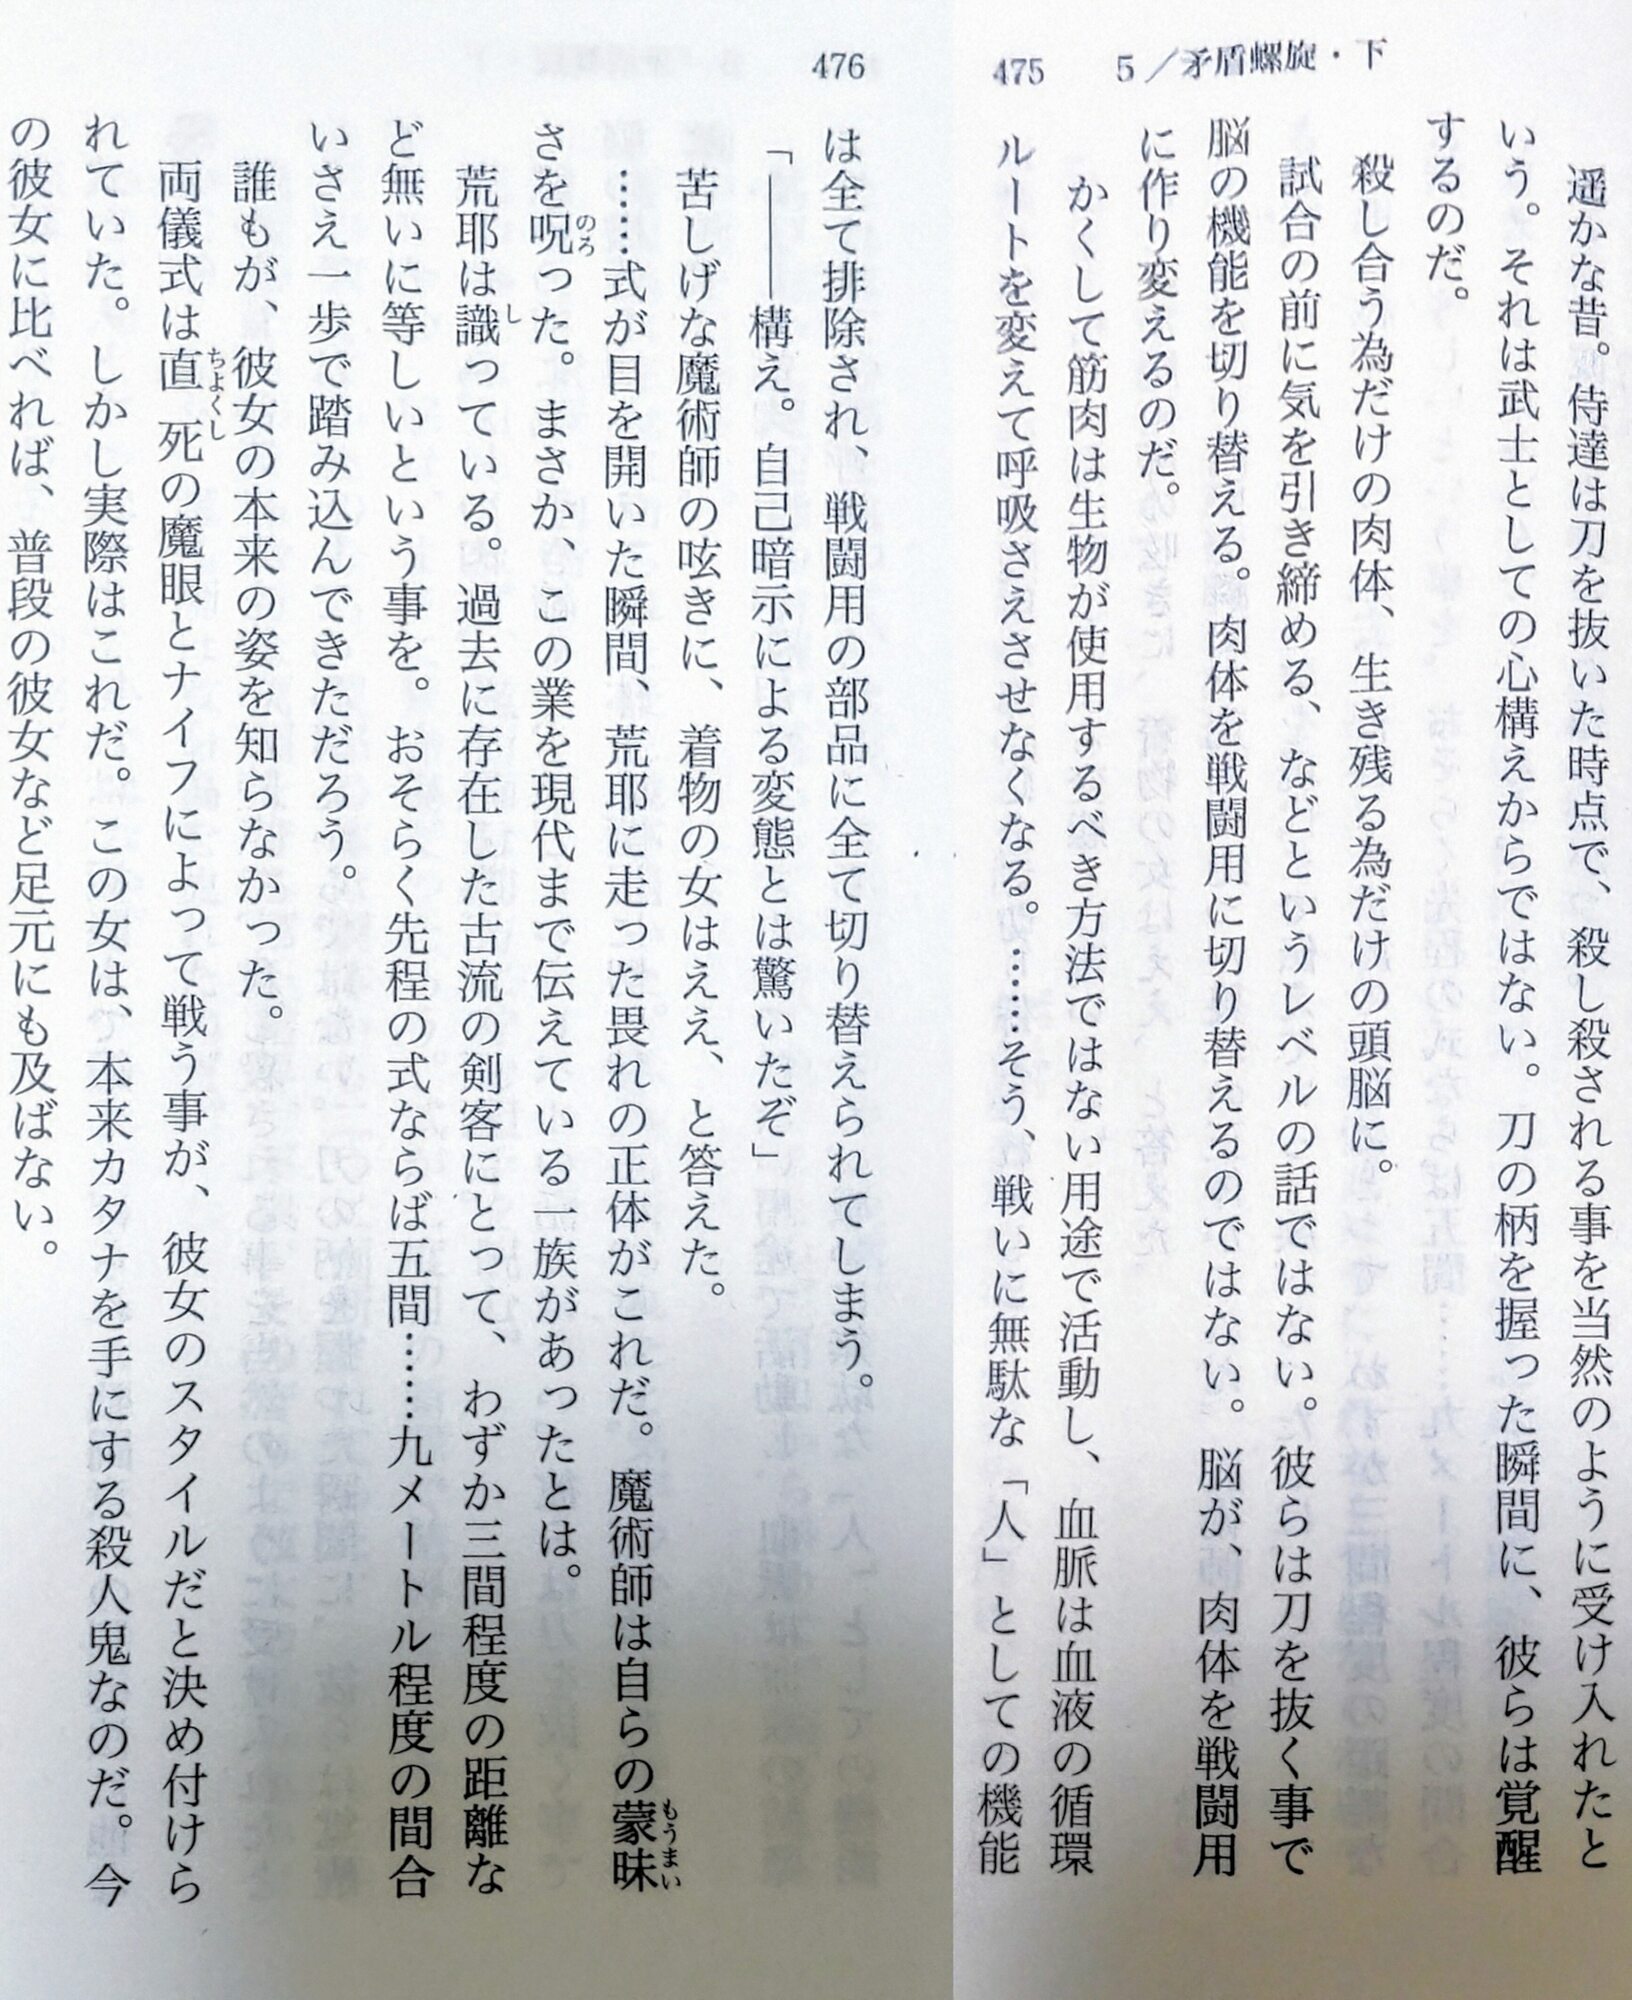 475　5／矛盾螺旋・下
　遥かな昔。侍達は刀を抜いた時点で、殺し殺される事を当然のように受け入れたと
いう。それは武士としての心構えからではない。刀の柄を握った瞬間に、彼らは覚醒
するのだ。
　殺し合う為だけの肉体、生き残る為だけの頭脳に。
　試合の前に気を引き締める、などというレベルの話ではない。彼らは刀を抜く事で
脳の機能を切り替える。肉体を戦闘用に切り替えるのではない。脳が、肉体を戦闘用
に作り変えるのだ。
　かくして筋肉は生物が使用するべき方法ではない用途で活動し、血脈は血液の循環
ルートを変えて呼吸さえさせなくなる。……そう、戦いに無駄な「人」としての機能
476
は全て排除され、戦闘用の部品に全て切り替えられてしまう。
「――構え。自己暗示による変態とは驚いたぞ」
　苦しげな魔術師の呟きに、着物の女はええ、と答えた。
　……式が目を開いた瞬間、荒耶に走った畏れの正体がこれだ。魔術師は自らの蒙昧もうまい
さを呪のろった。まさか、この業を現代まで伝えている一族があったとは。
　荒耶は識しっている。過去に存在した古流の剣客にとって、わずか三間程度の距離な
ど無いに等しいという事を。おそらく先程の式ならば五間……九メートル程度の間合
いさえ一歩で踏み込んできただろう。
　誰もが、彼女の本来の姿を知らなかった。
　両儀式は直死ちょくしの魔眼とナイフによって戦う事が、彼女のスタイルだと決め付けら
れていた。しかし実際はこれだ。この女は、本来カタナを手にする殺人鬼なのだ。今
の彼女に比べれば、普段の彼女など足元にも及ばない。